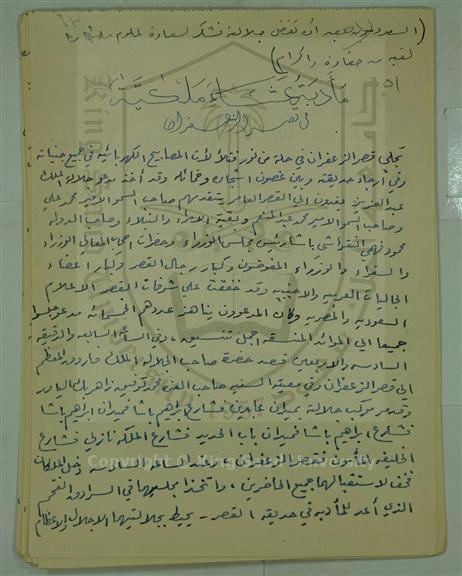 لقيه من حفاوة واكرام)
مأدبة عشاء ملكية
في قصر الزعفران
تجلى قصر الزعفران في حلة من نور فتلألأت المصابيح الكهربائية في جميع جنباته
وفي أرجاء حديقته وبين غصون اشجاره وخمائله وقد أخذ مدعوو جلالة الملك
عبد العزيز يفدون الى القصر العامر يتقدمهم صاحب السمو الامير محمد علي
وصاحب السمو الامير محمد عبد المنعم وبقية الامراء والنبلاء وصاحب الدولة
محمود فهمي النقراشي باشا رئيس مجلس الوزراء وحضرات اصحاب المعالي الوزراء
والسفراء والوزراء المفوضون وكبار رجال القصر وكبار اعضاء
الجاليات العربية والاجنبية وقد خفقت على شرفات القصر الاعلام
السعودية والمصرية وكان المدعوون يناهز عددهم الخمسمائة مدعو جلسوا
جميعا الى الموائد المنسقة اجمل تنسيق، وفي الساعة السابعة والدقيقة
السادسة والاربعين قصد حضرة صاحب الجلالة الملك فاروق المعظم
الى قصر الزعفران وفي معيته السنية صاحب العزة محمد توفيق زاهر بك الياور
وقد مر موكب جلالته بميدان عابدين فشارع ابراهيم باشا فميدان ابراهيم باشا
فشارع ابراهيم باشا فميدان باب الحديد فشارع الملكة نازلي فشارع
الخليفة المأمون فقصر الزعفران، وعند الساعة السادسة
فخف لاستقبالهما جميع الحاضرين، واتخذا مجلسهما في السرادق الفخم
الذي أعد للمأدبة في حديقة القصر – يحيط بجلالتيهما الاجلال والاعظام